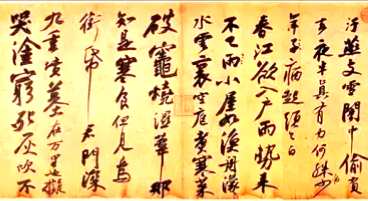 汙燕支雪闇中偷負
去夜半真有力何殊少
年子病起頭已白
春江欲入戶雨勢來
不已雨小屋如漁舟濛
水雲裏空庖煮寒菜
破竈燒濕葦那
知是寒食但見烏
銜帋君門深
九重墳墓在万里也擬
哭塗窮死灰吹不